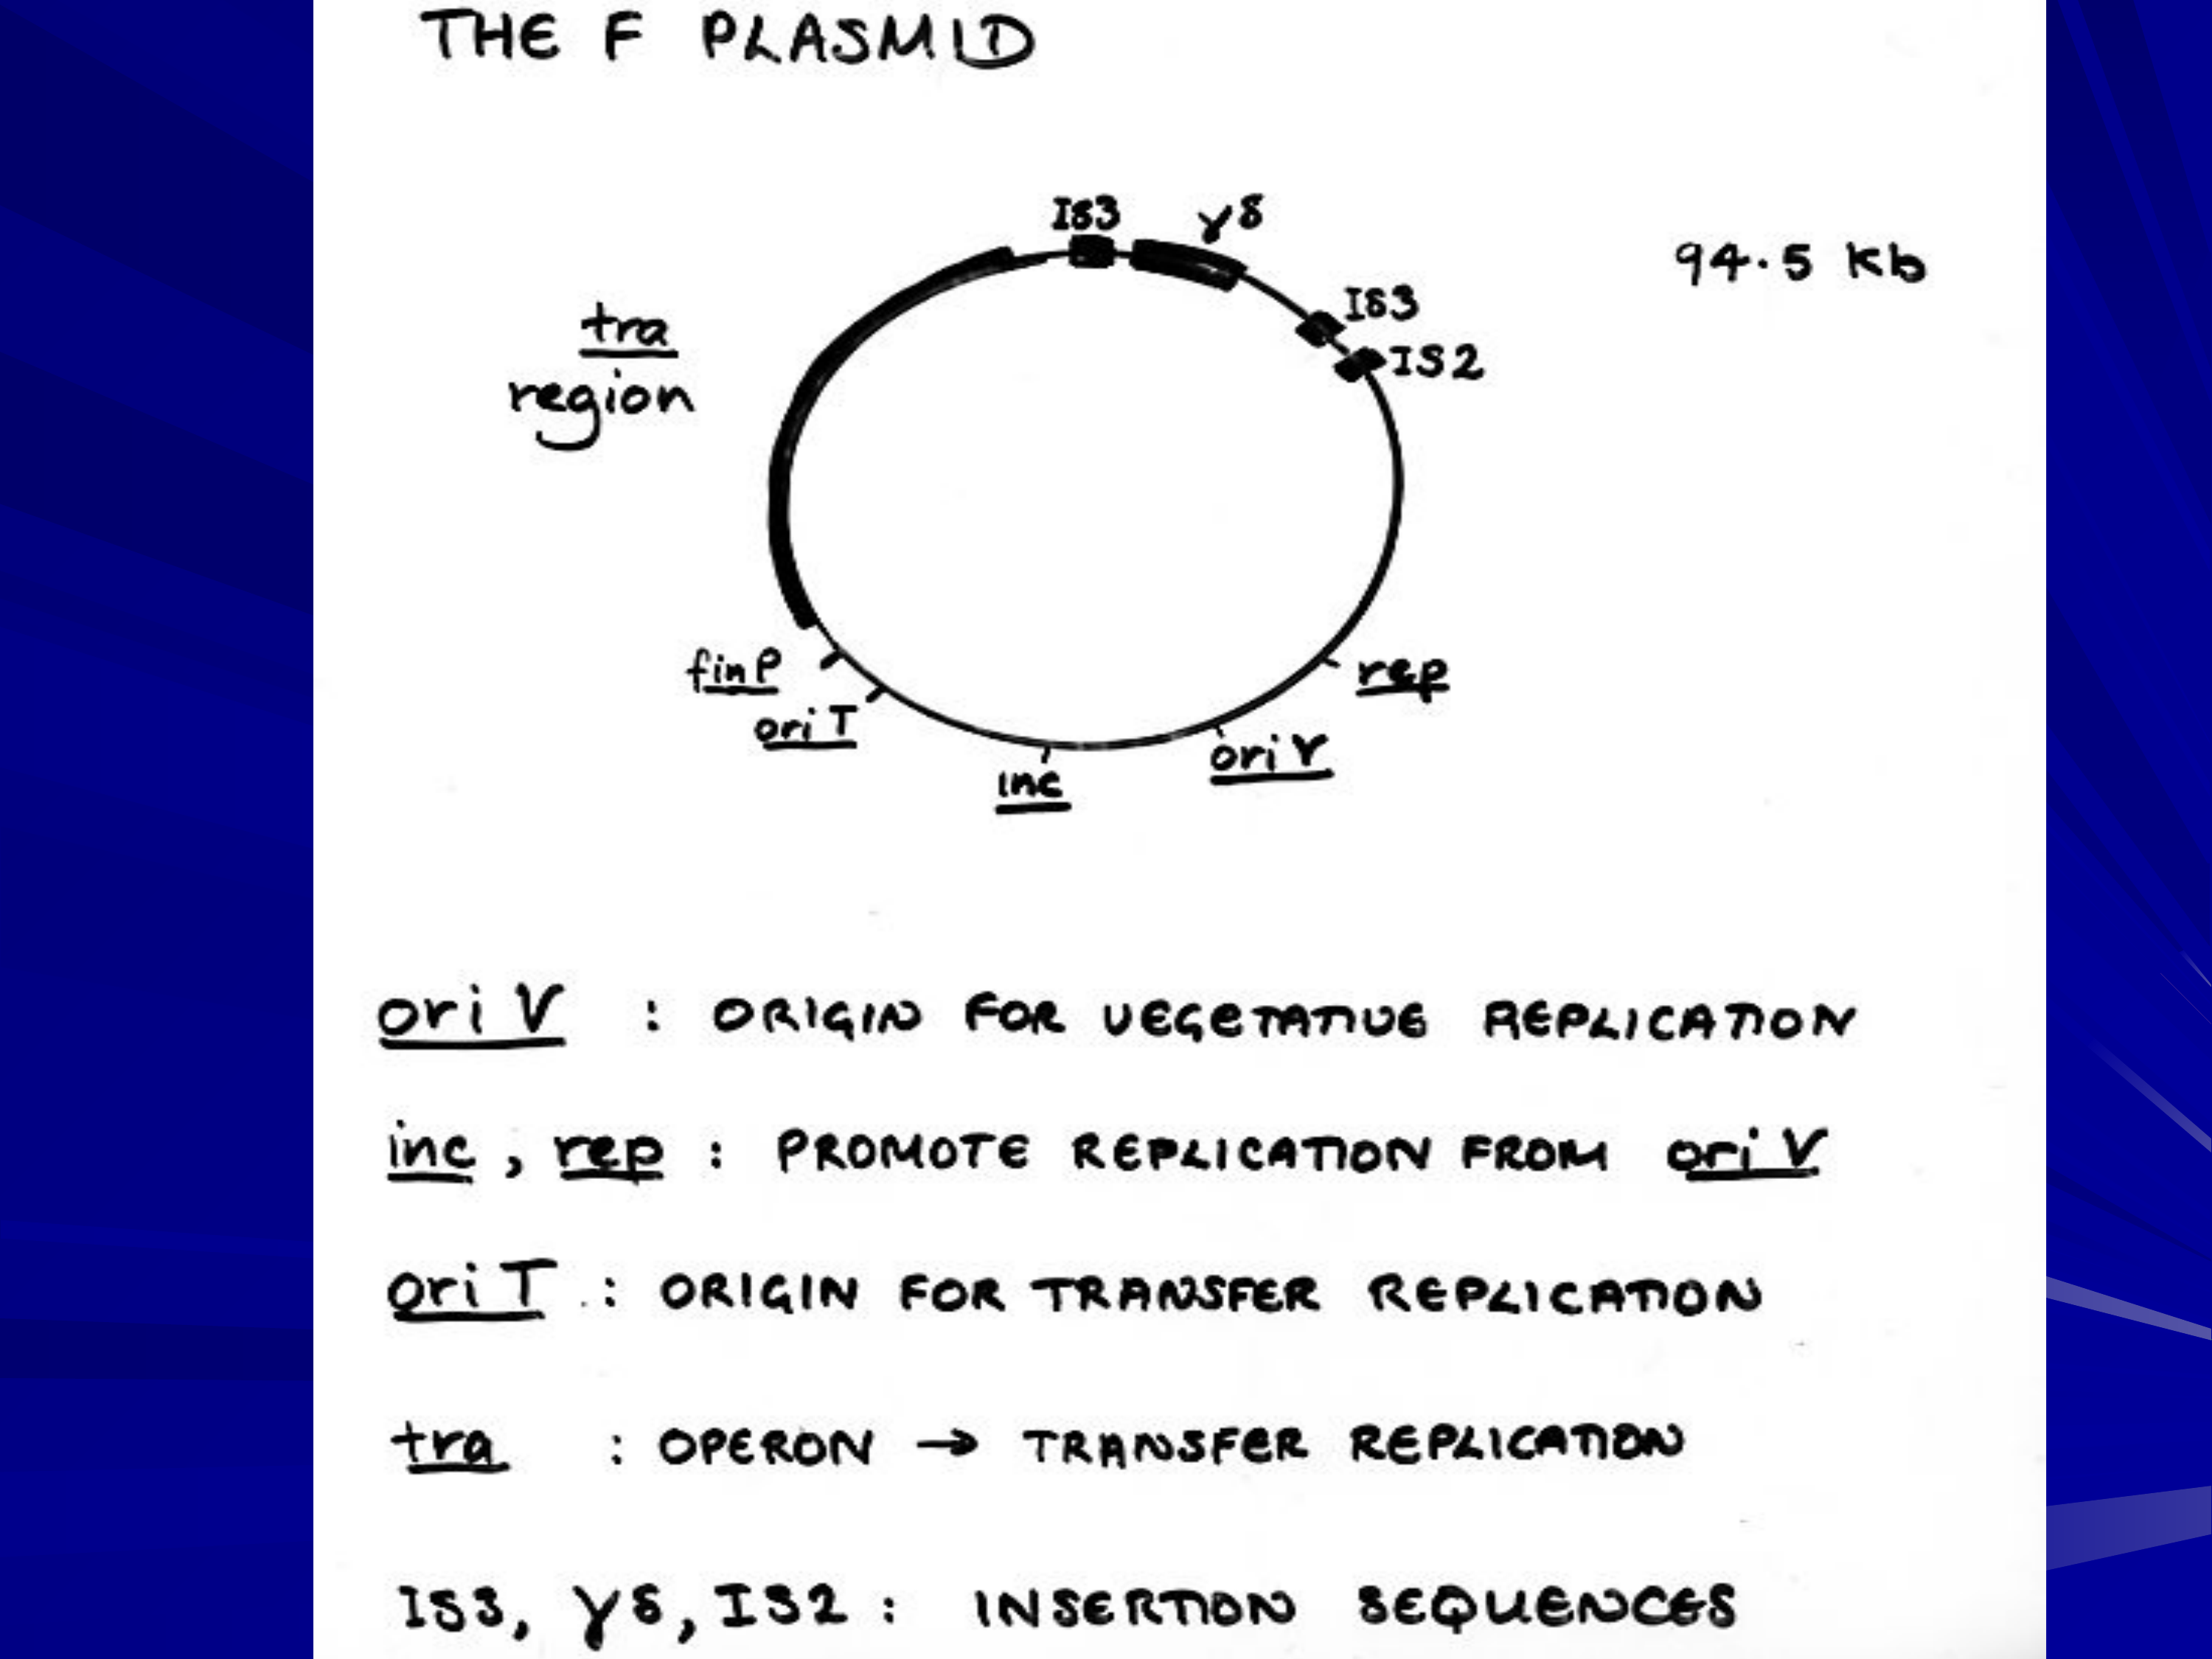 THE F PLASMID
IS3
γδ
94.5 Kb
IS3
IS2
tra
region
finP
rep
oriT
oriV
inc
oriV : ORIGIN FOR VEGETATIVE REPLICATION
inc, rep : PROMOTE REPLICATION FROM oriV
oriT : ORIGIN FOR TRANSFER REPLICATION
tra : OPERON → TRANSFER REPLICATION
IS3, γδ, IS2 : INSERTION SEQUENCES